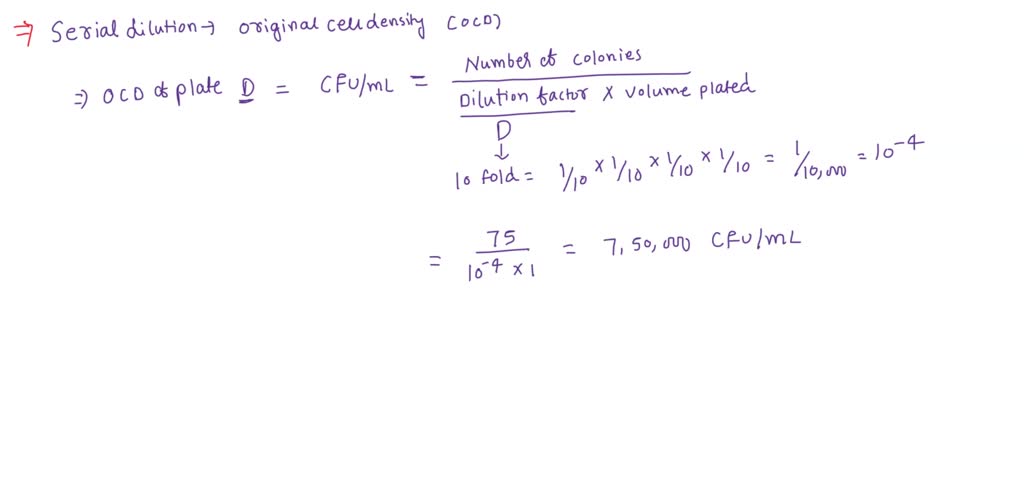 ⇒ Serial dilution → original cell density (OCD)
⇒ OCD of plate D = CFU/mL = Number of colonies / Dilution factor × volume plated
D
↓
10 fold = 1/10 × 1/10 × 1/10 × 1/10 = 1/10,000 = 10⁻⁴
= 75 / 10⁻⁴ × 1 = 7,50,000 CFU/mL